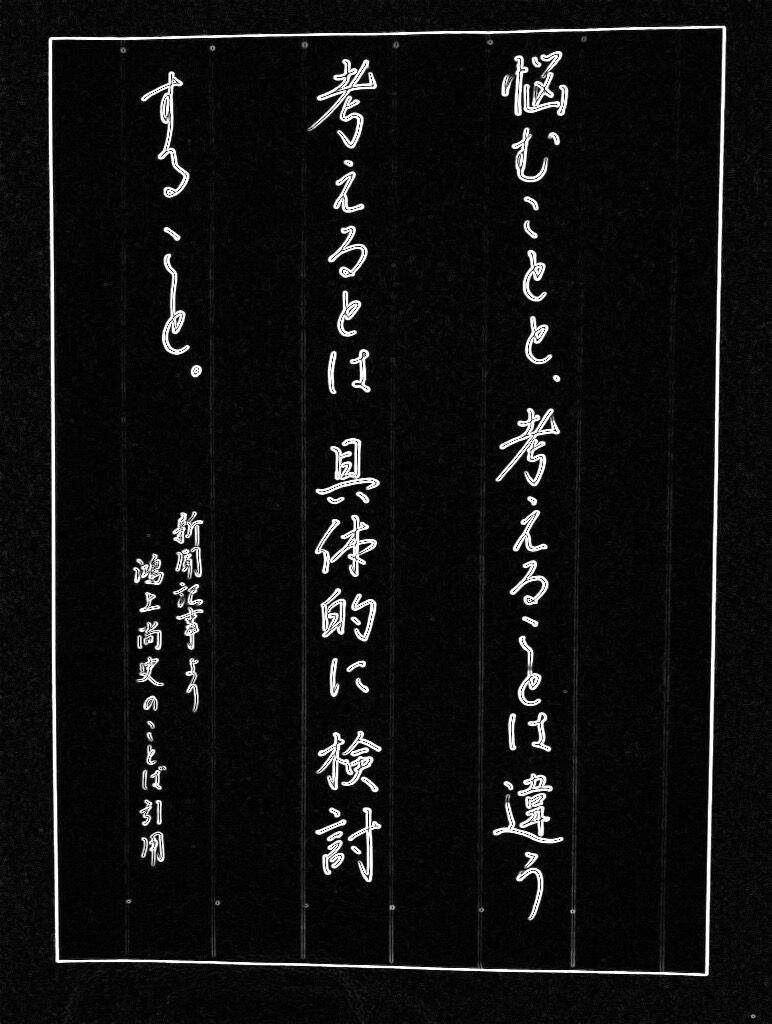 悩むことと、考えることは違う
考えるとは具体的に検討
すること。
新聞記事より
鴻上尚史のことば引用